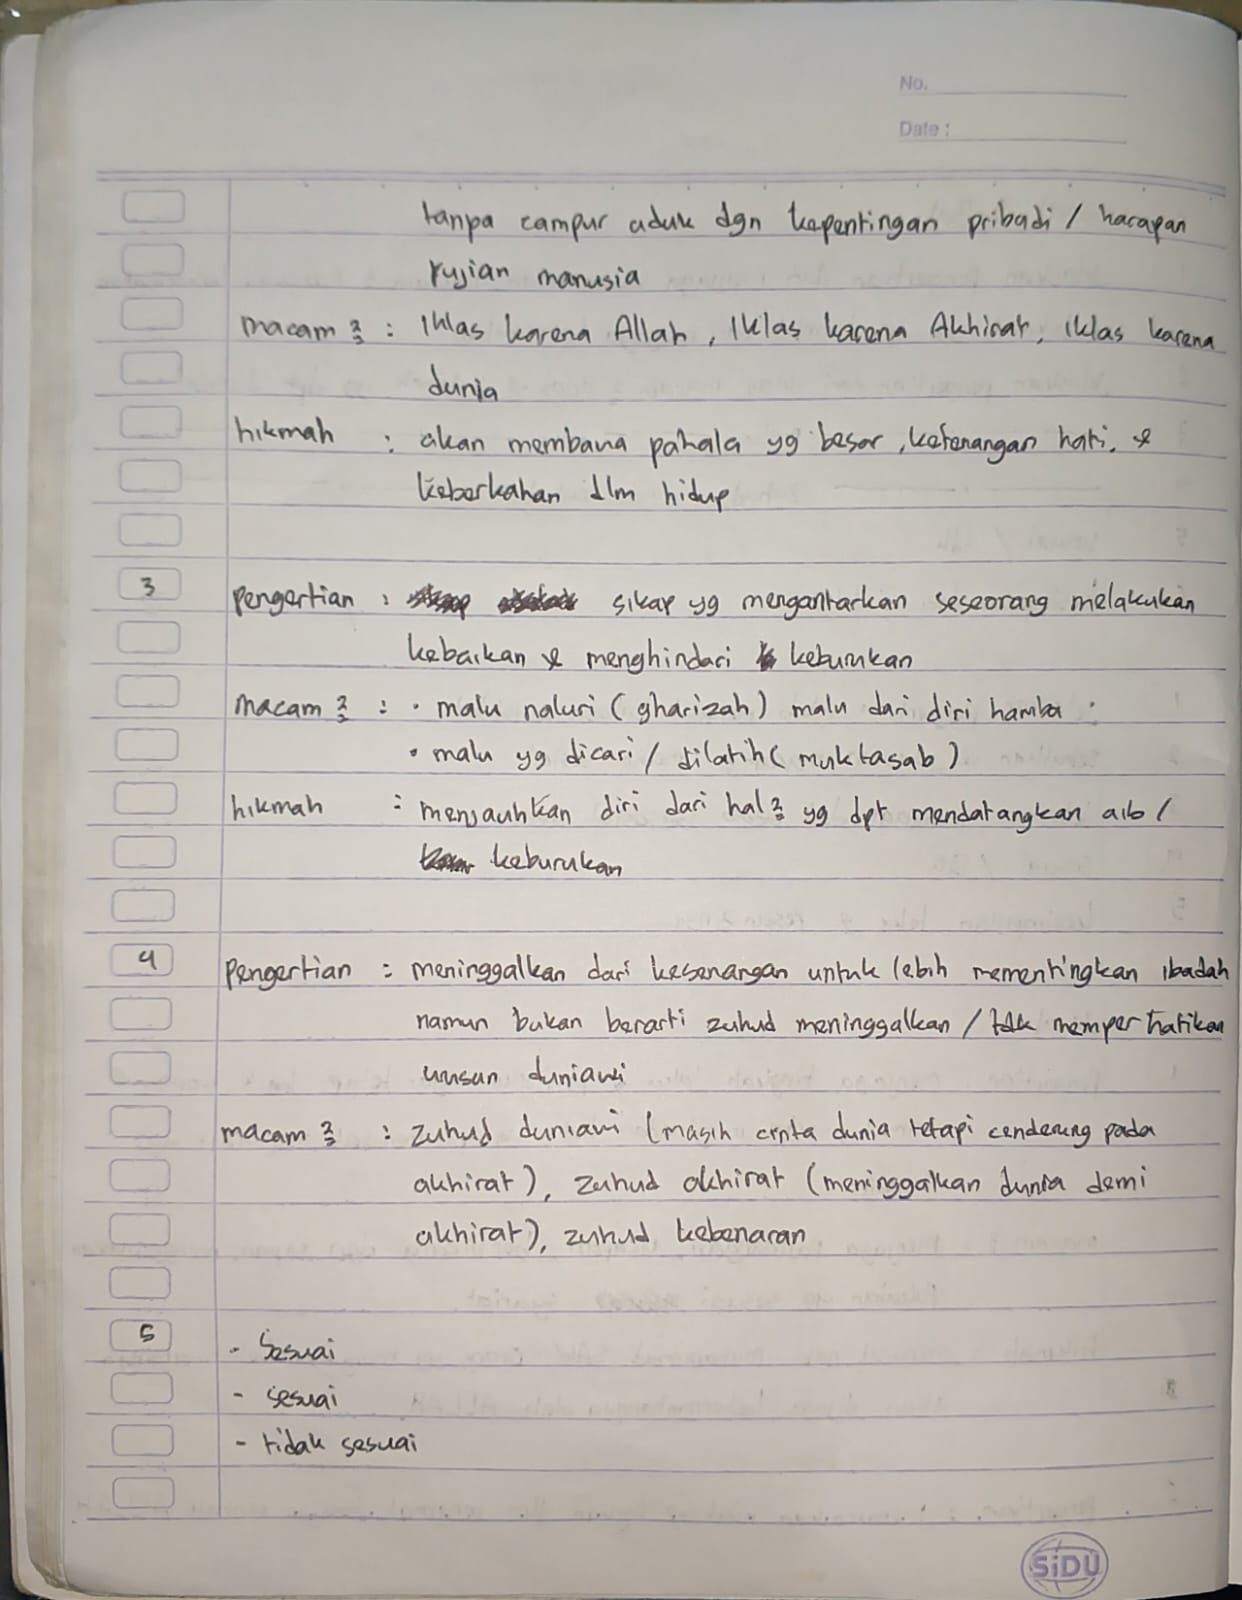 No.
Date :
tanpa campur aduk dgn kepentingan pribadi / harapan
pujian manusia
macam 2 : Ikhlas karena Allah, Iklas karena Akhirat, iklas karena
dunia
hikmah : akan membawa pahala yg besar, ketenangan hati, &
keberkahan dlm hidup
3 pengertian : sikap yg mengantarkan seseorang melakukan
kebaikan & menghindari keburukan
macam 2 : • malu naluri (gharizah) malu dari diri hamba
• malu yg dicari / dilatih (muktasab)
hikmah : menjauhkan diri dari hal 2 yg dpt mendatangkan aib /
keburukan
4 pengertian : meninggalkan dari kesenangan untuk lebih mementingkan ibadah
namun bukan berarti zuhud meninggalkan / tdk memperhatikan
urusan duniawi
macam 2 : zuhud duniawi (masih cinta dunia tetapi cenderung pada
akhirat), zuhud akhirat (meninggalkan dunia demi
akhirat), zuhud kebenaran
5 - Sesuai
- sesuai
- tidak sesuai
SiDU